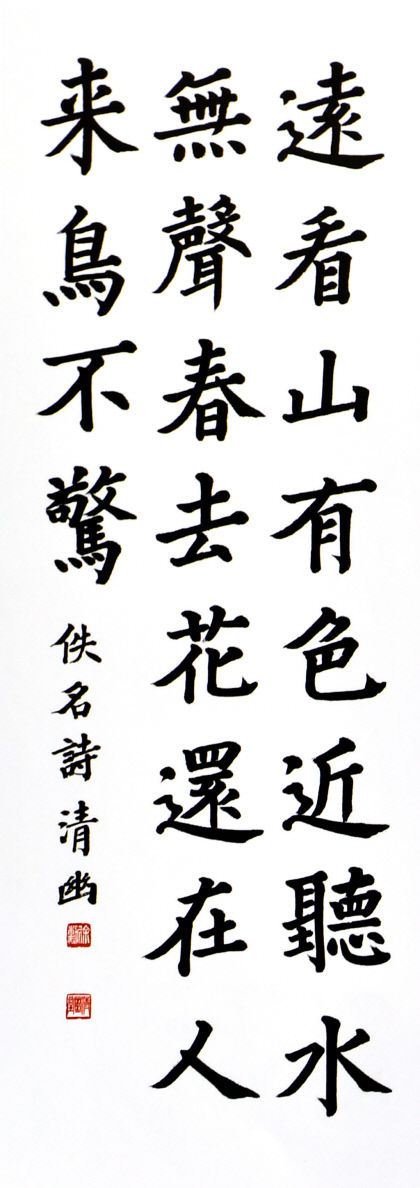 遠看山有色近聽水
無聲春去花還在人
来鳥不驚
佚名詩清幽